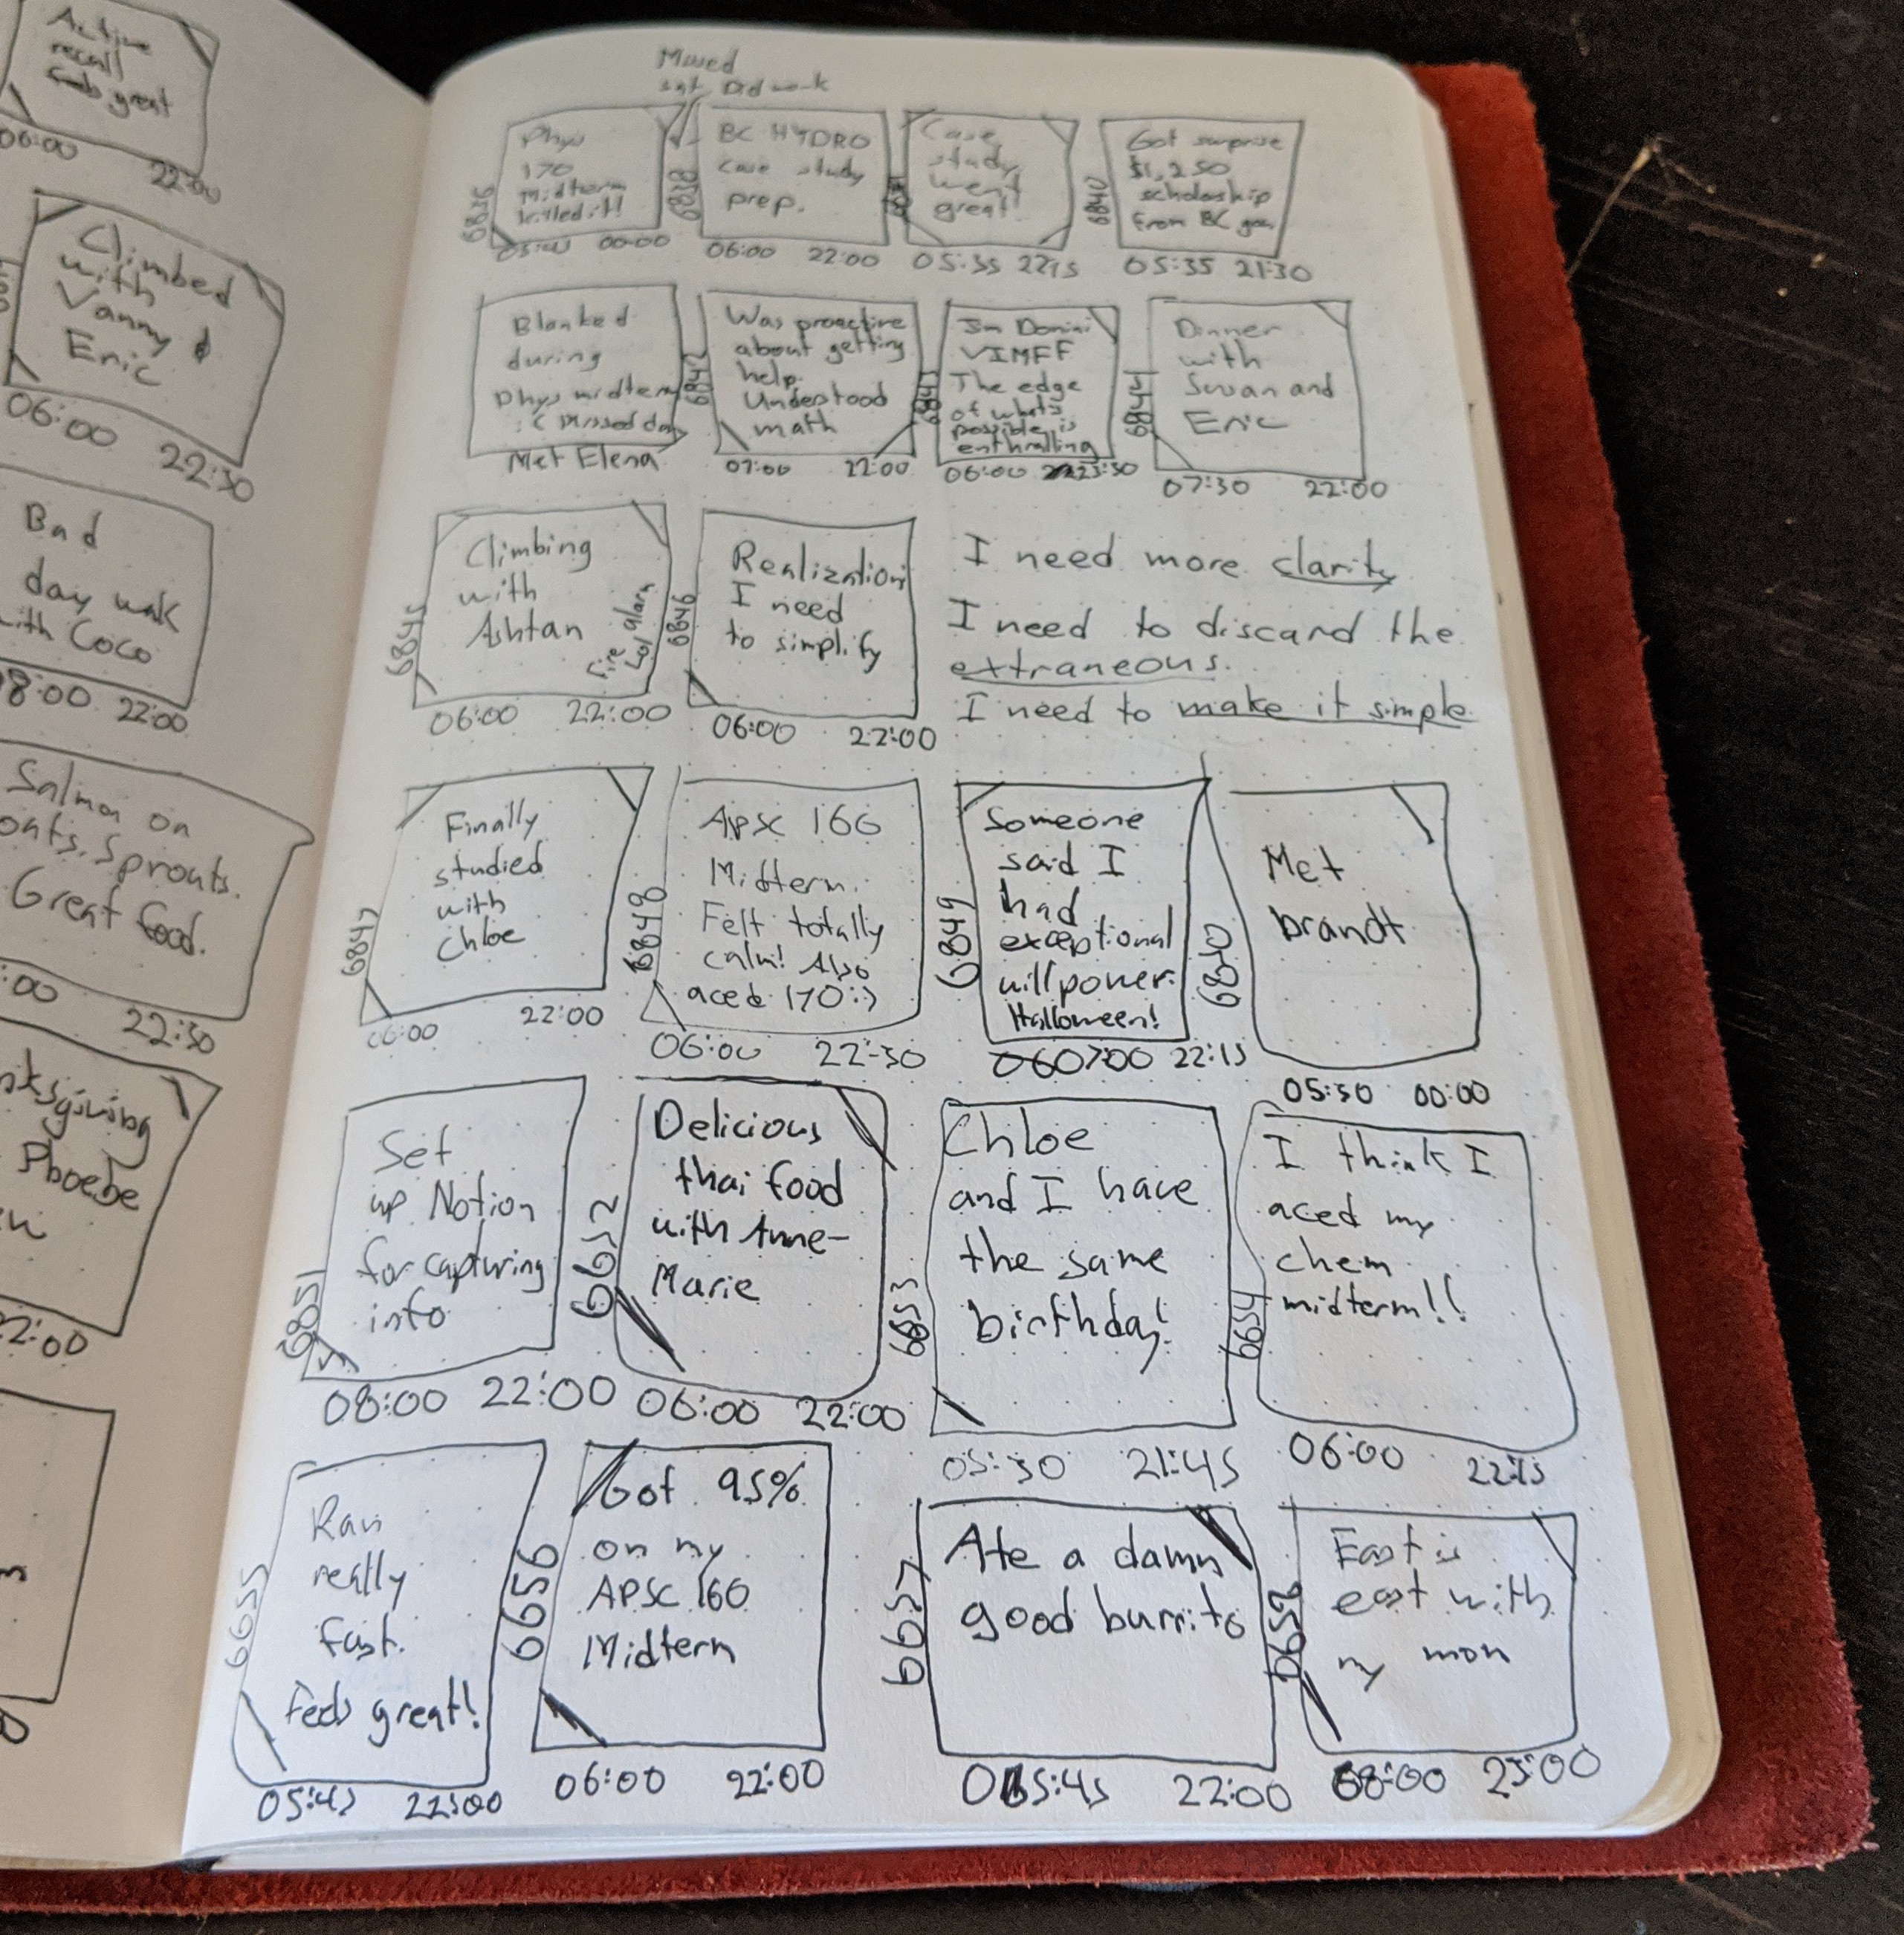 Active
recall
feels great
06:00 22:00
Climbed
with
Vanny &
Eric
06:00 22:30
Bad
day walk
with Coco
08:00 22:00
Salmon on
oats. Sprouts.
Great food.
:00 22:30
nksgiving
Phoebe
22:00
Mixed
Did work
Phys
170
Midterm
killed it!
00:00
6838
BC HYDRO
case study
prep.
06:00 22:00
Case
study
went
great!
05:35 22:15
6840
Got surprise
$1,250
scholarship
from BC gov
05:35 21:30
Blanked
during
Phys midterm
:( Missed day
Met Elena
6842
Was proactive
about getting
help.
Understood
math
07:00 22:00
6843
Jim Donini
VIMFF
The edge
of what's
possible is
enthralling
06:00 23:30
6844
Dinner
with
Susan and
Eric
07:30 22:00
6845
Climbing
with
Ashtan
Fire alarm
Lol
06:00 22:00
6846
Realization
I need
to simplify
06:00 22:00
I need more clarity
I need to discard the
extraneous.
I need to make it simple
6847
Finally
studied
with
Chloe
06:00 22:00
6848
APSC 160
Midterm.
Felt totally
calm! Also
aced 170:)
06:00 22:30
6849
Someone
said I
had
exceptional
willpower.
Halloween!
07:00 22:15
6850
Met
brandt
05:30 00:00
6851
Set
up Notion
for capturing
info
08:00 22:00
6652
Delicious
thai food
with Anne-
Marie
06:00 22:00
6653
Chloe
and I have
the same
birthday!
05:30 21:45
6654
I think I
aced my
chem
midterm!!
06:00 22:15
6655
Ran
really
fast.
Feels great!
05:45 22:00
6656
Got 95%
on my
APSC 160
Midterm
06:00 22:00
6657
Ate a damn
good burrito
05:45 22:00
6658
East is
east with
my mom
08:00 23:00